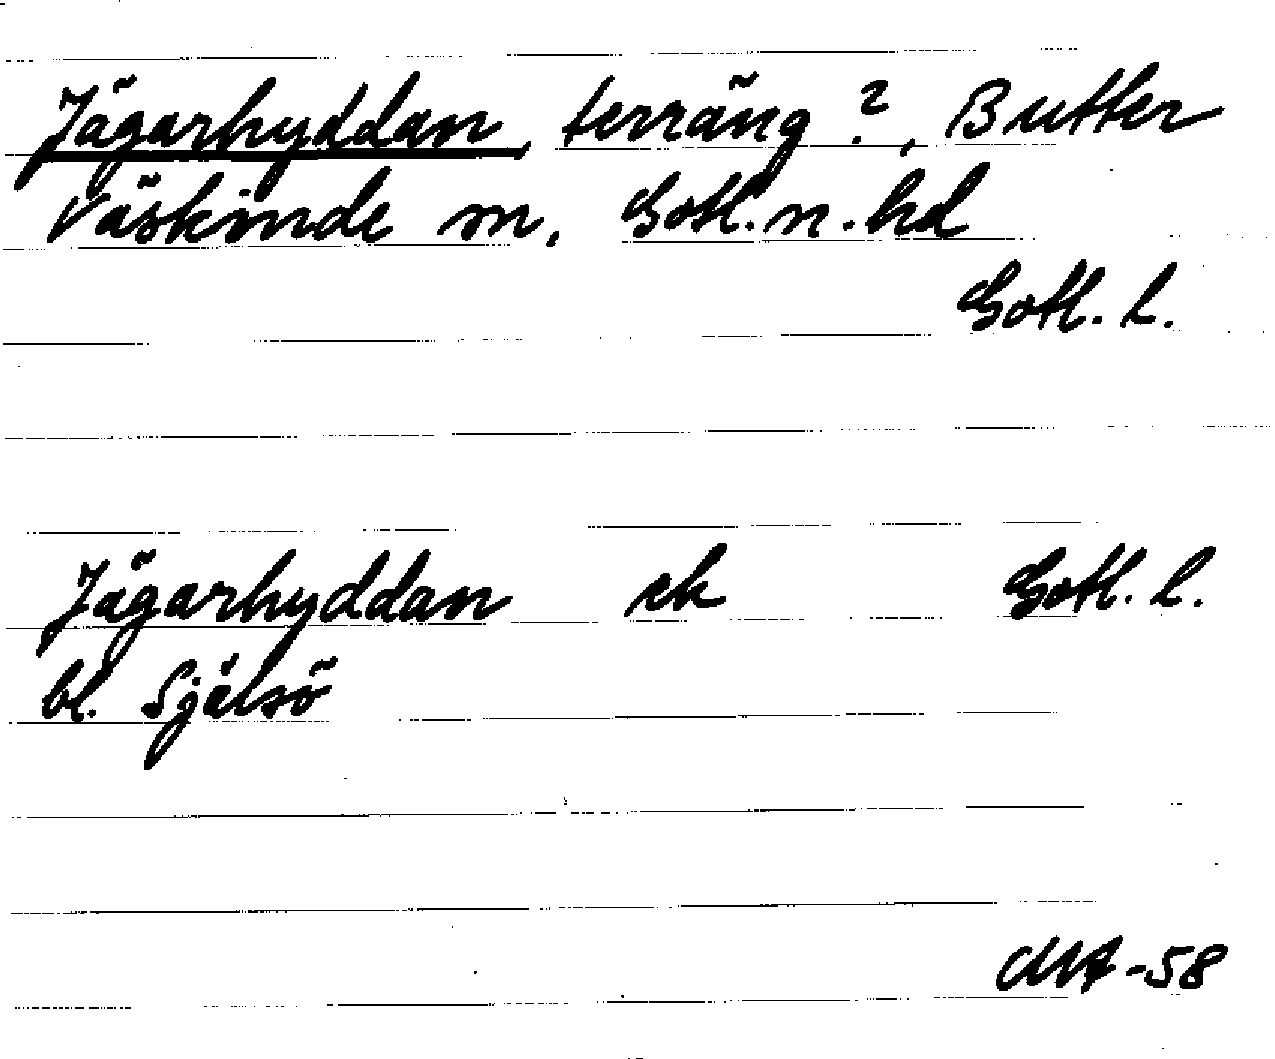 Jägarhyddan, terräng?, Butter
Väskinde sn, Gotl. n. hd
Gotl. l.
Jägarhyddan ek Gotl. l.
bl. Själsö
MA-58